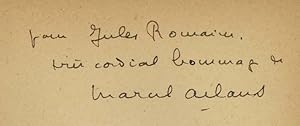 pour Jules Romains,
très cordial hommage de
Marcel Arland